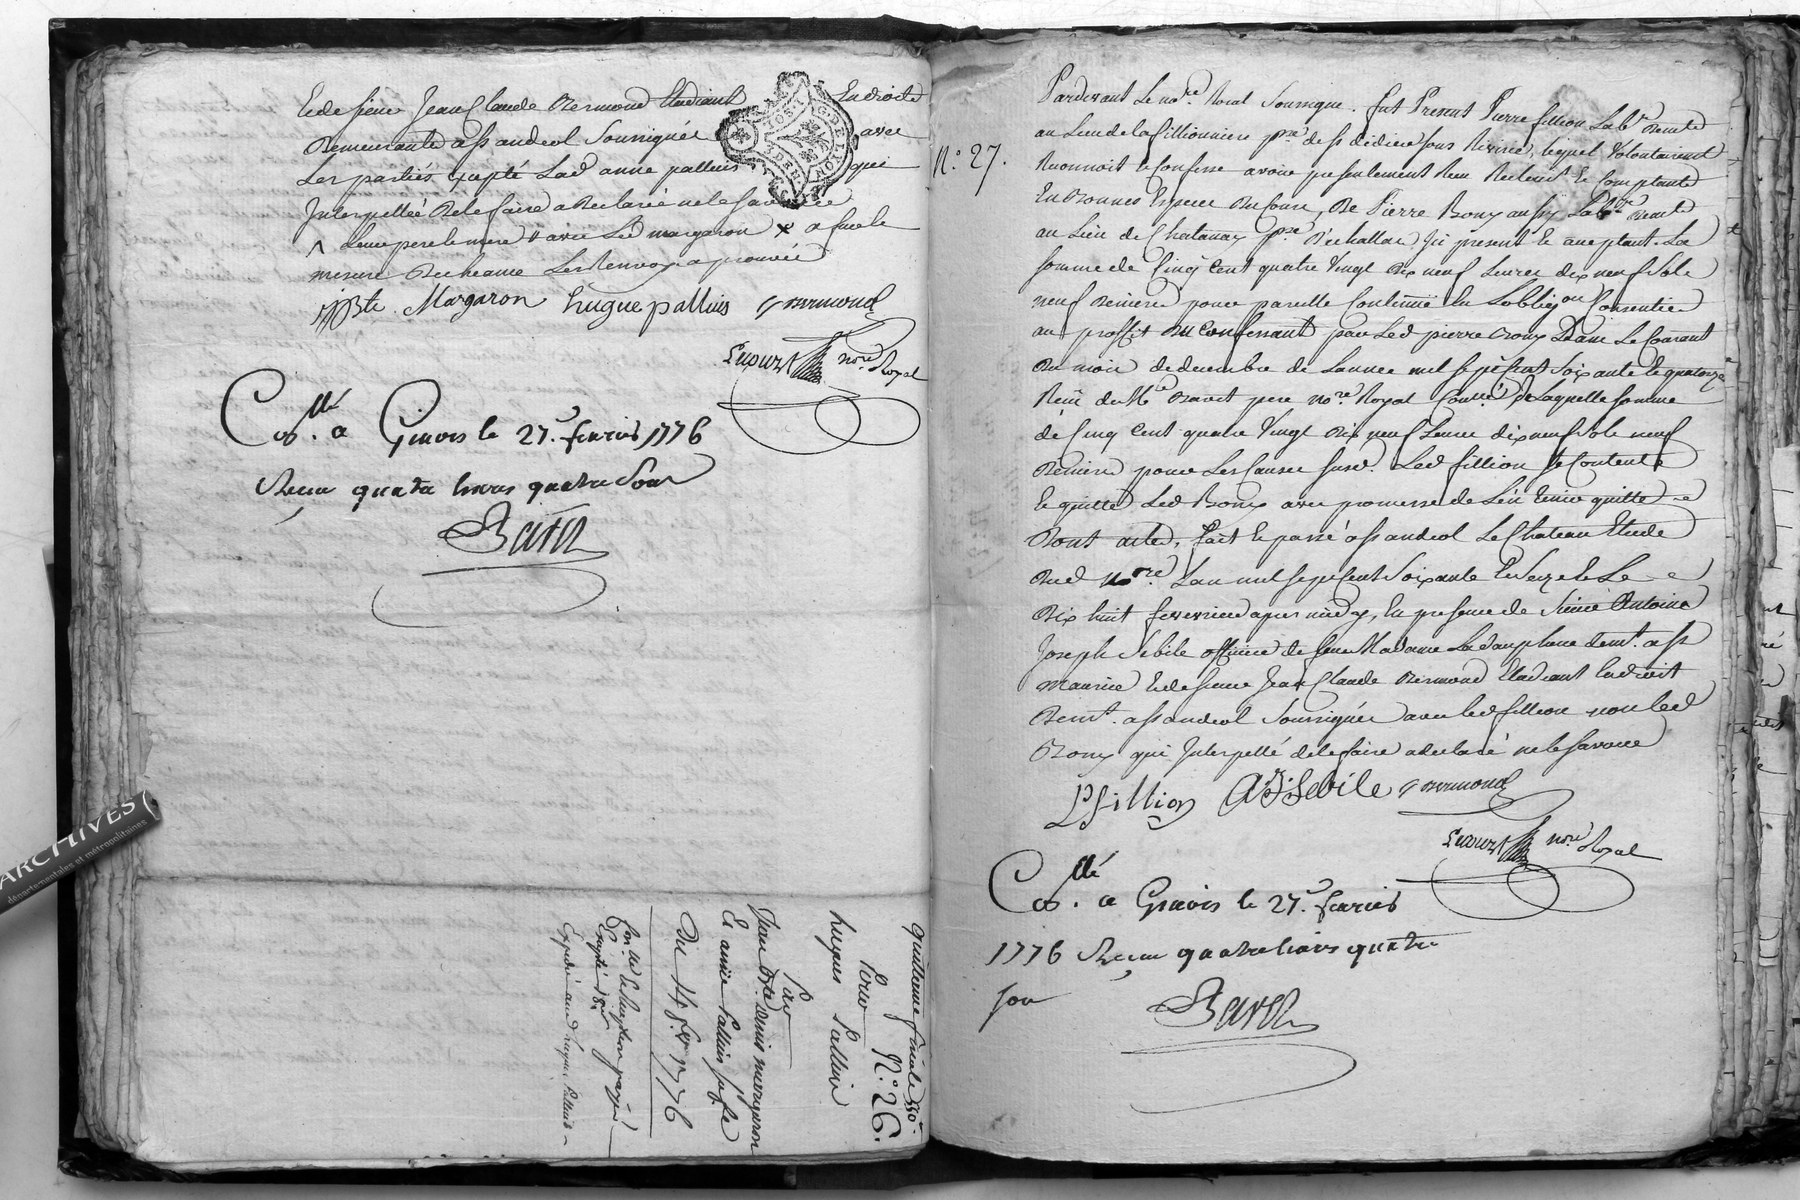 Et de sieur Jean Claude Bermond Etudiant En droite
Demeurante a St andeol Soussignés avec
Les parties, excepté Lad anne palluis qui
Interpellée De le faire a declaré ne le savoir
mesure De heaume Les Renvoy approuvé
JBte Margaron hugue palluis Bermond
nore Royal
Collé a Givors le 27. fevrier 1776
Recu quatre livres quatre sous
quittance finale 550
N.° 26.
Pour
hugues Palluis
Par
Jean Bte Denis margaron
Et anne Palluis sa fe
Du 14 fer 1776
Expedié aud hugues Palluis
ARCHIVES
départementales et métropolitaines
N.° 27.
Pardevant Le nore Roial Soussigné. fut Present Pierre fillion Labr Demt
au Lieu de la fillionniere pse de St didier sous Riverie, lequel Volontairemt
Reconnoit et Confesse avoir presentement Reçu Reelemt et Comptant
En Bonnes Especes Du Cours, De Pierre Bonx aussy Labr Demt
au Lieu de Chatanay pse D'echallas, Ici present et aceptant La
somme de Cinq Cent quatre Vingt Dix neuf Livres dix neuf Sols
neuf Deniers pour pareille Contenüe En Lobligon Consentie
au proffit Du Confessant par Led pierre Bonx Le Courant
Du mois de decembre de Lannée mil sept Cent Soixante et quatorze
Reçüe du Me Bavet pere nore Royal Contlé De Laquelle Somme
de Cinq Cent quatre Vingt Dix neuf Livres dix neuf Sols neuf
Deniers pour Les Causes susd. Led fillion se Contente
Et quitte Led Bonx avec promesse de L'en tenir quitte
Dont acte, fait et passé a St andeol Le Chateau Etude
Dud nore Lan mil sept Cent Soixante et Seize et Le
Dix huit fevrier apres midy, En presence de Sieur Antoine
Joseph Sebile officier de feue Madame La dauphine demt. a St
Maurice Et de sieur Jean Claude Bermond Etudiant En droit
Demt. a St andeol Soussignés avec led fillion non led
Bonx qui Interpellé de le faire a declaré ne le savoir
P fillion A J Sebile Bermond
nore Royal
Collé a Givors le 27. fevrier
1776 Recu quatre livres quatre
sou